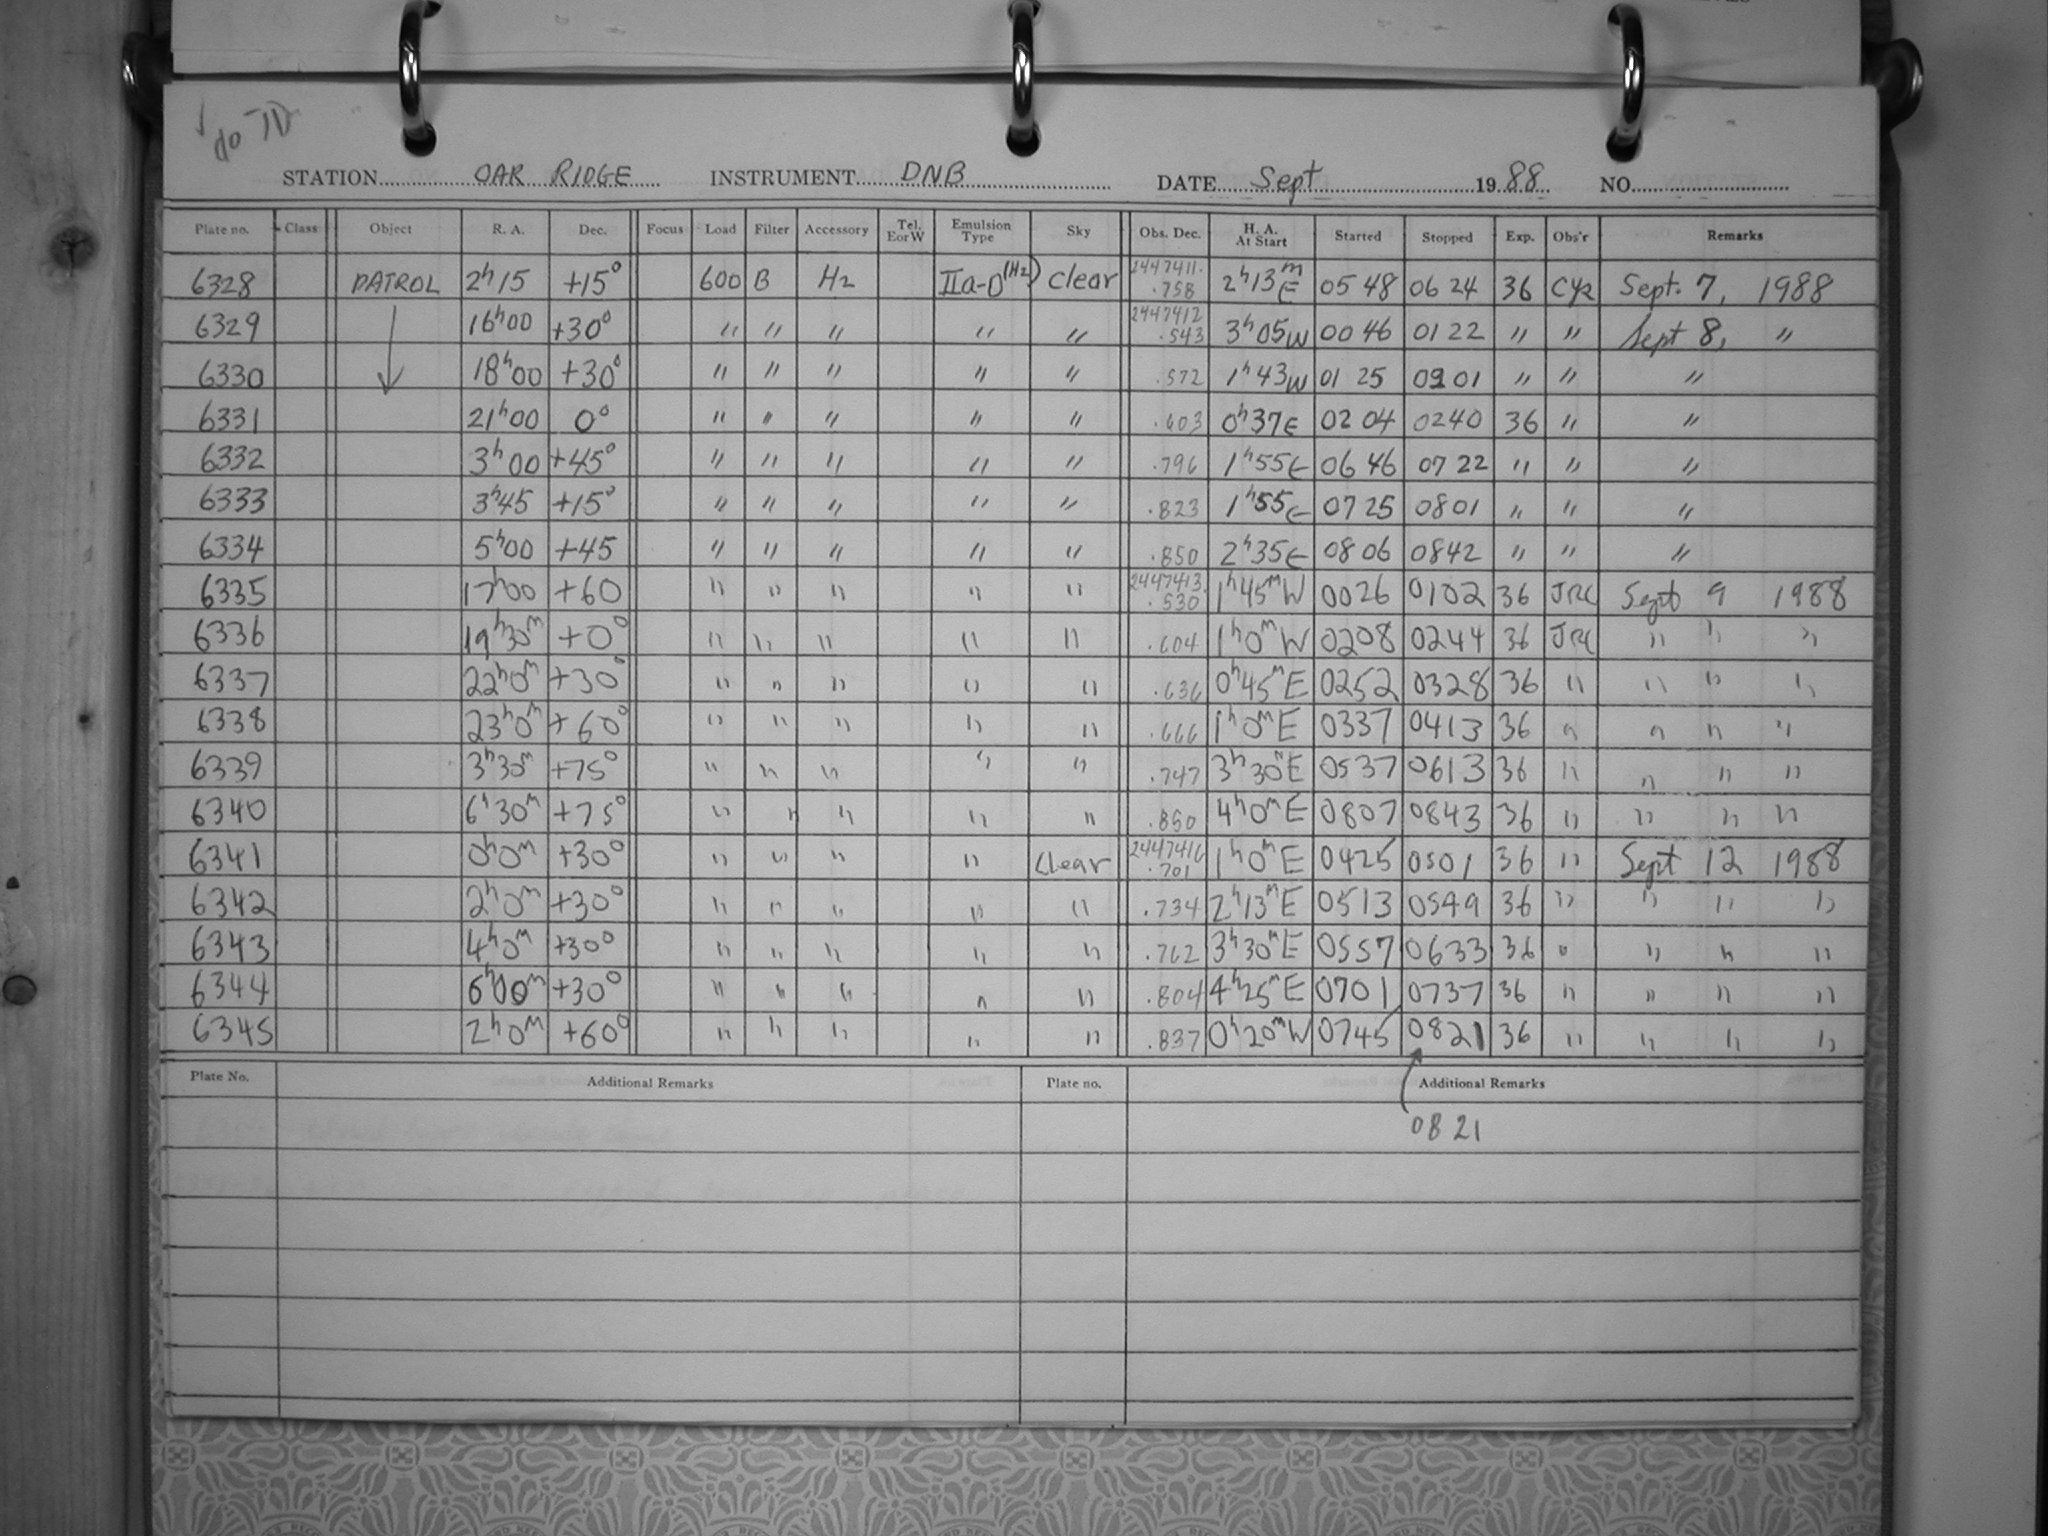 do JD
STATION OAK RIDGE INSTRUMENT DNB DATE Sept 1988 NO.
Plate no. Class Object R. A. Dec. Focus Load Filter Accessory Tel. E or W Emulsion Type Sky Obs. Dec. H. A. At Start Started Stopped Exp. Obs'r Remarks
6328 PATROL 2h15 +15° 600 B H2 IIa-O(H2) clear 2447411. .758 2h13m E 05 48 06 24 36 CYR Sept. 7, 1988
6329 16h00 +30° " " " " " 2447412 .543 3h05W 00 46 01 22 " " Sept 8, "
6330 18h00 +30° " " " " " .572 1h43W 01 25 0201 " " "
6331 21h00 0° " " " " " .603 0h37E 02 04 0240 36 " "
6332 3h00 +45° " " " " " .796 1h55E 06 46 07 22 " " "
6333 3h45 +15° " " " " " .823 1h55E 07 25 0801 " " "
6334 5h00 +45 " " " " " .850 2h35E 08 06 0842 " " "
6335 17h00 +60 " " " " " 2447413. .530 1h45mW 0026 0102 36 JRC Sept 9 1988
6336 19h30m +0° " " " " " .604 1h0mW 0208 0244 36 JRC " " "
6337 22h0m +30° " " " " " .636 0h45mE 0252 0328 36 " " " "
6338 23h0m +60° " " " " " .666 1h0mE 0337 0413 36 " " " "
6339 3h30m +75° " " " " " .747 3h30mE 0537 0613 36 " " " "
6340 6h30m +75° " " " " " .850 4h0mE 0807 0843 36 " " " "
6341 0h0m +30° " " " " clear 2447416 .701 1h0mE 0425 0501 36 " Sept 12 1988
6342 2h0m +30° " " " " " .734 2h13mE 0513 0549 36 " " " "
6343 4h0m +30° " " " " " .762 3h30mE 0557 0633 36 " " " "
6344 6h00m +30° " " " " " .804 4h25mE 0701 0737 36 " " " "
6345 2h0m +60° " " " " " .837 0h20mW 0745 0821 36 " " " "
Plate No. Additional Remarks Plate no. Additional Remarks
0821